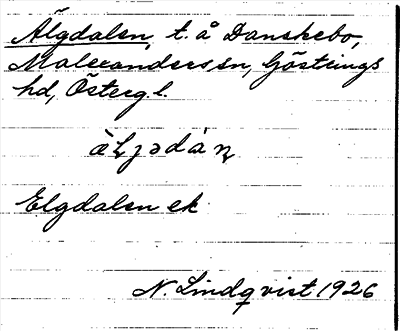 Älgdalen, t. å Danskebo,
Malexanders sn, Göstrings
hd, Östergl.
Elgdalen ek
N. Lindqvist 1926